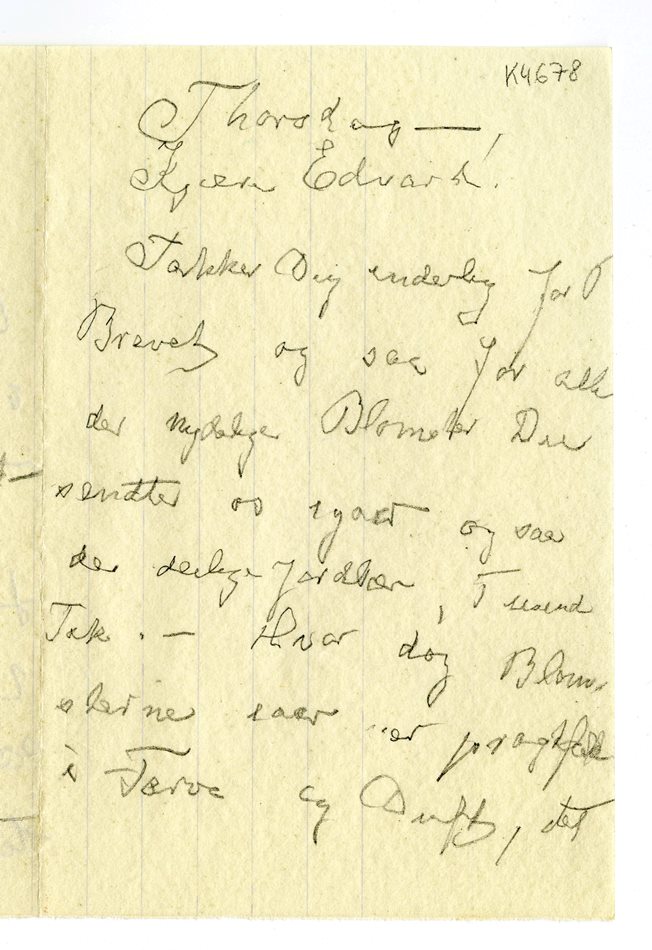 K4678
Thorsdag —,
Kjære Edvard!
Takker Dig inderlig for
Brevet og saa for alle
de nydelige Blomster Du
sendte os igaar og saa
de deilige Jordbær, Tusend
Tak. — Hvor dog Blom-
sterne iaar er pragtfulde
i Farve og Duft, det